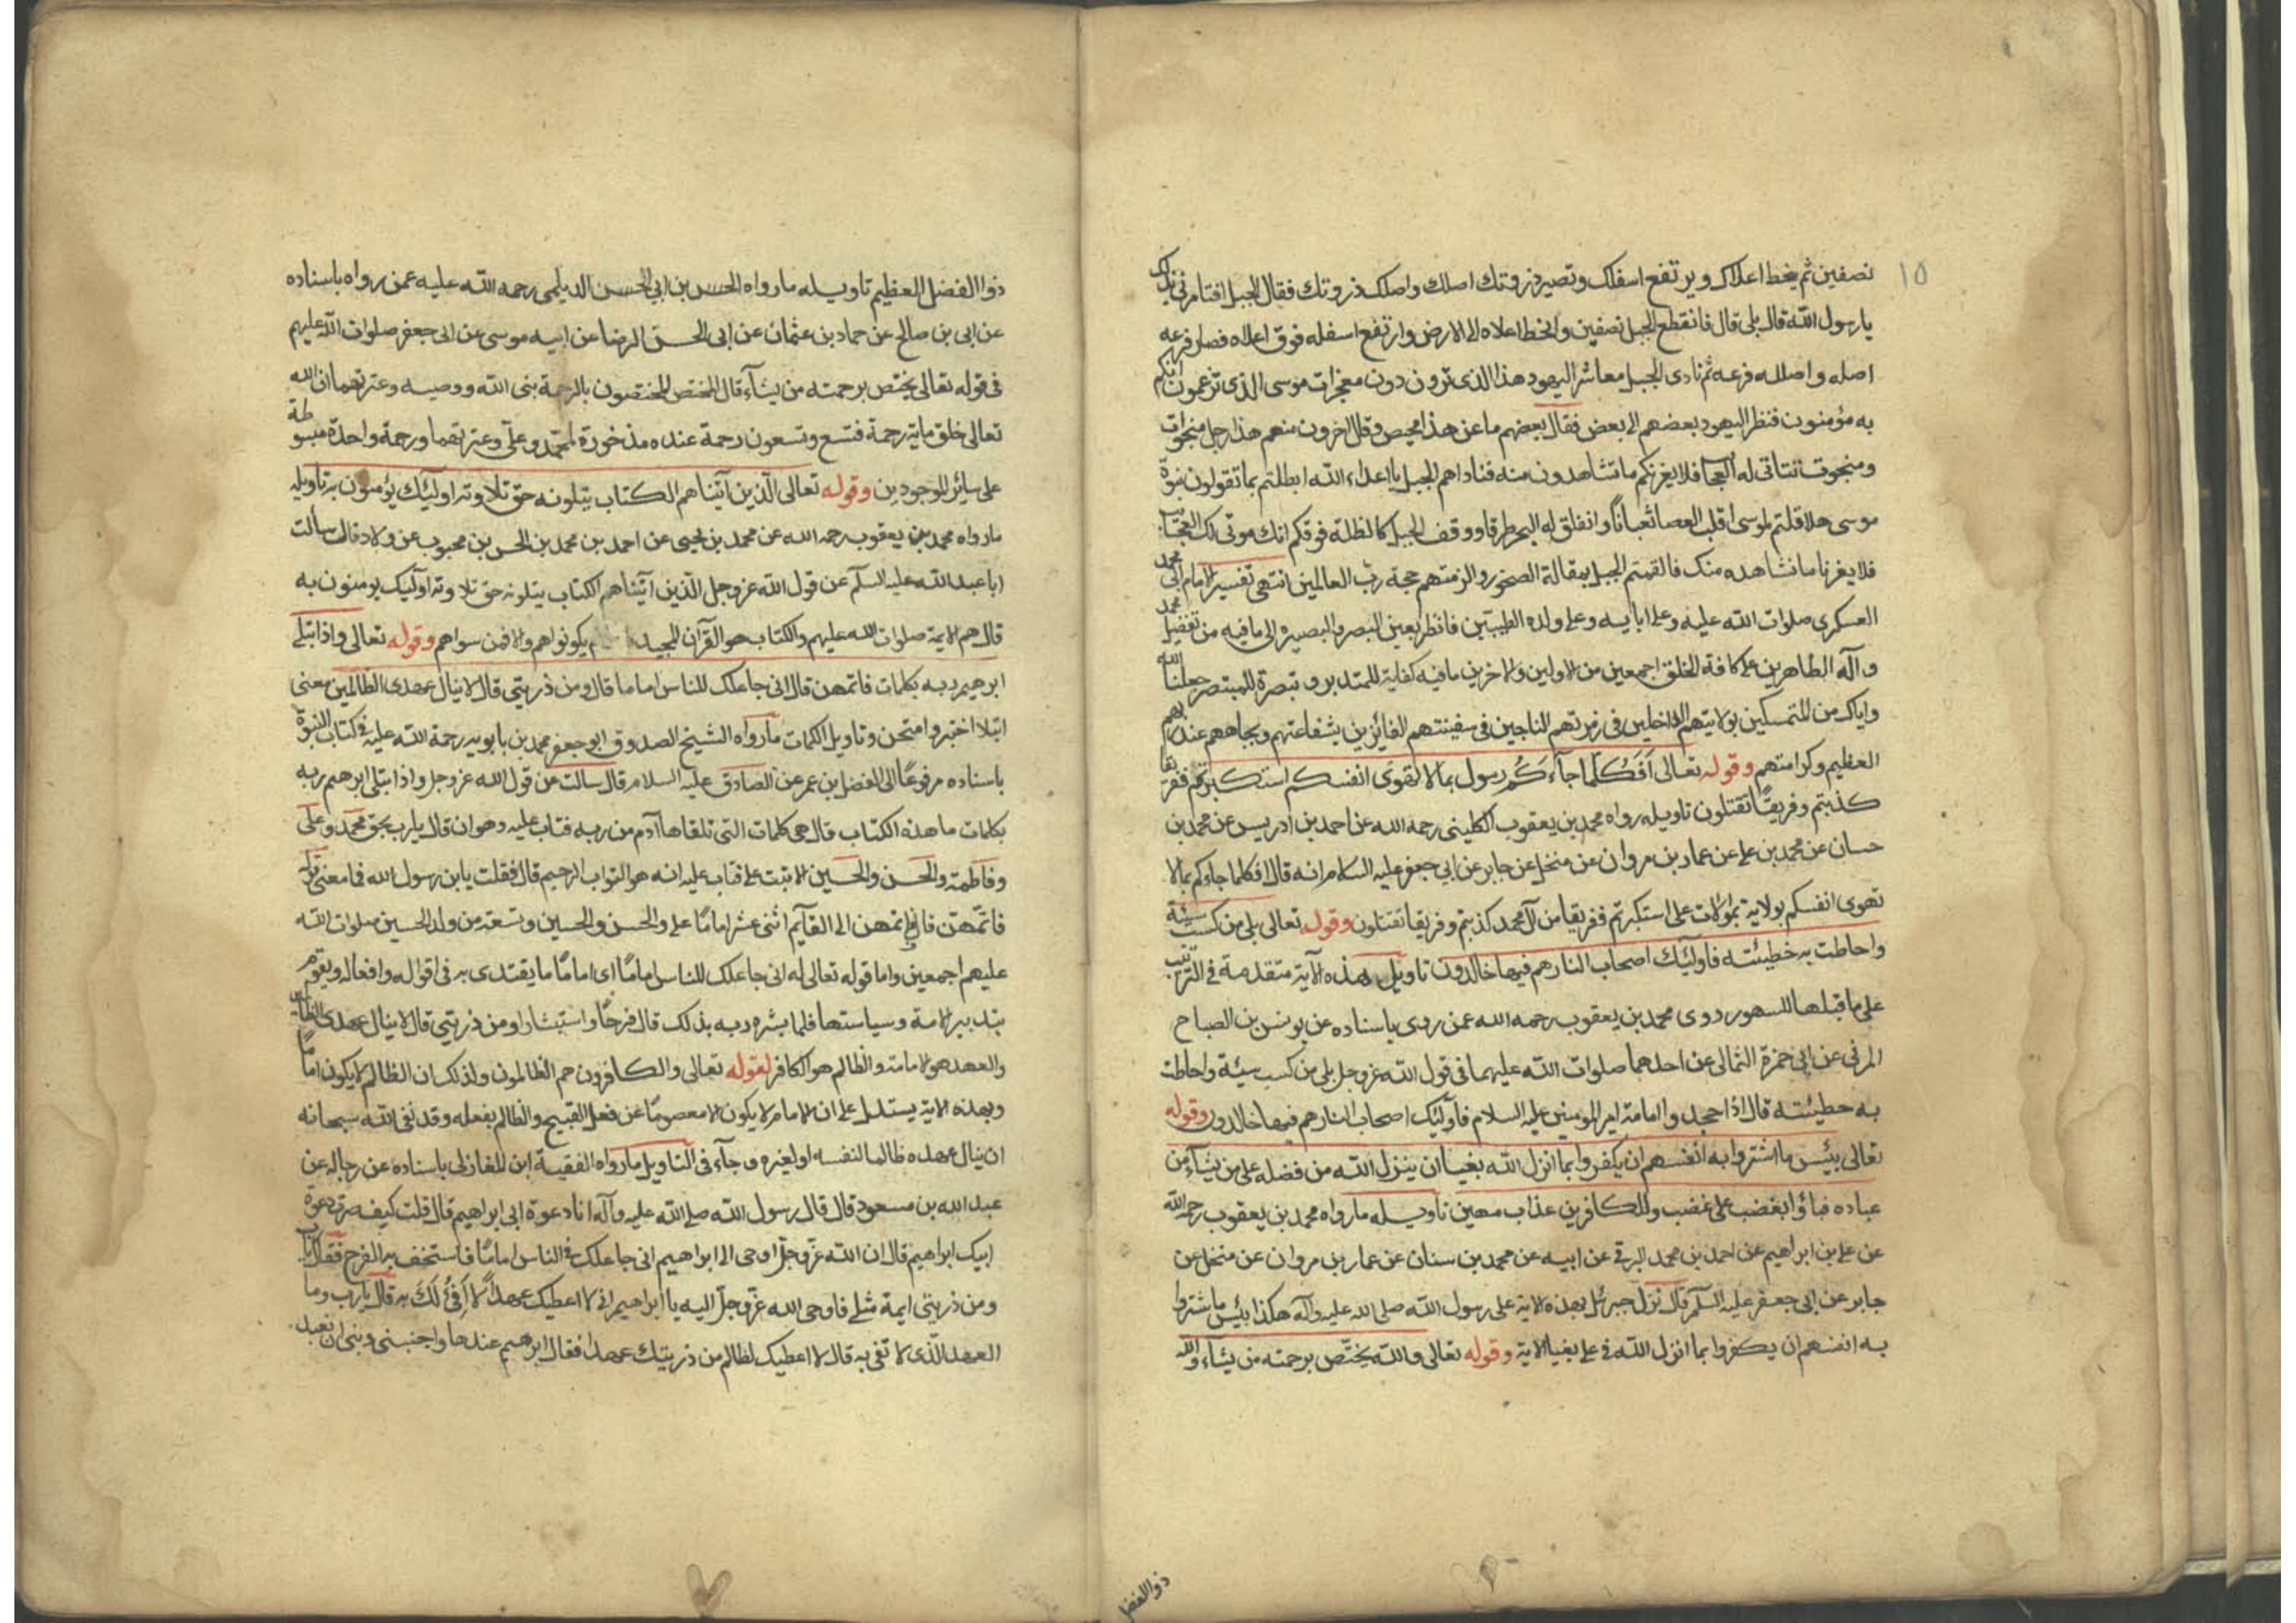 ١٥
نصفين ثم يخط اعلاك ويرتفع اسفلك وتصير ذروتك اصلك واصلك ذروتك فقال الجبل افتامرني بذلك
يارسول الله قال بلى قال فانقطع الجبل نصفين وانخط اعلاه الى الارض وارتفع اسفله فوق اعلاه فصار فرعه
اصله واصله فرعه ثم نادى الجبل معاشر اليهود هذا الذى ترون دون معجزات موسى الذى تزعمون انكم
به مؤمنون فنظر اليهود بعضهم الى بعض فقال بعضهم ما عن هذا محيص وقال اخرون منهم هذا رجل منجوت
ومنجوت تتاتى له العجائب فلا يغرنكم ما تشاهدون منه فناداهم الجبل يا اعداء الله ابطلتم بما تقولون نبوة
موسى هلا قلتم لموسى اقلب العصا ثعبانا وانفلق له البحر طرقا ووقف الجبل كالظلة فوقكم انك موتى لك العجائب
فلا يغرنا ما نشاهده منك فالقمتم الجبل بمقالة الصخور والزمتهم حجة رب العالمين انتهى تفسير الامام ابى محمد
العسكرى صلوات الله عليه وعلى ابايه وعلى ولده الطيبين فانظر بعين البصر والبصيرة الى ما فيه من تفضيل محمد
وآله الطاهرين على كافة الخلق اجمعين من الاولين والاخرين ما فيه كفاية للمتدبر و تبصرة للمبتصر جعلنا الله
واياك من المتمسكين بولايتهم الداخلين فى زمرتهم الناجين فى سفينتهم الفائزين بشفاعتهم وبجاههم عند ربهم
العظيم وكرامتهم وقوله تعالى أفكلما جاءكم رسول بما لا تهوى انفسكم استكبرتم ففريقا
كذبتم وفريقا تقتلون تاويله رواه محمد بن يعقوب الكلينى رحمه الله عن احمد بن ادريس عن محمد بن
حسان عن محمد بن على عن عمار بن مروان عن منخل عن جابر عن ابى جعفر عليه السلام انه قال افكلما جاءكم بما لا
تهوى انفسكم بولاية بموالات على استكبرتم ففريقا من آل محمد كذبتم وفريقا تقتلون وقوله تعالى بلى من كسب سيئة
واحاطت به خطيئته فاولئيك اصحاب النار هم فيها خالدون تاويل هذه الآية متقدمة فى الترتيب
على ما قبلها للسهو روى محمد بن يعقوب رحمه الله عمن روى باسناده عن يونس بن الصباح
المزنى عن ابى حمزة الثمالى عن احدهما صلوات الله عليهما فى قول الله عزوجل بلى من كسب سيئة واحاطت
به خطيئته قال اذا جحد وا امامة امير المومنين عليه السلام فاولئيك اصحاب النار هم فيها خالدون وقوله
تعالى بئيس ما اشتروا به انفسهم ان يكفروا بما انزل الله بغيا ان ينزل الله من فضله على من يشآء من
عباده فباؤا بغضب على غضب وللكافرين عذاب مهين تاويله ما رواه محمد بن يعقوب رحمه الله
عن على بن ابراهيم عن احمد بن محمد البرقى عن ابيه عن محمد بن سنان عن عمار بن مروان عن منخل عن
جابر عن ابى جعفر عليه السلم قال نزل جبرئيل بهذه الاية على رسول الله صلى الله عليه وآله هكذا بئيس ما اشتروا
به انفسهم ان يكفروا بما انزل الله فى على بغيا الاية وقوله تعالى والله يختص برحمته من يشاء والله
ذوالفضل
ذوا الفضل العظيم تاويله ما رواه الحسن بن ابى الحسن الديلمى رحمه الله عليه عمن رواه باسناده
عن ابى بن صالح عن حماد بن عثمان عن ابى الحسن الرضا عن ابيه موسى عن ابى جعفر صلوات الله عليهم
فى قوله تعالى يختص برحمته من يشآء قال المختص المختصون بالرحمة بنى الله ووصيه وعترتهما ان الله
تعالى خلق ماية رحمة فتسع وتسعون رحمة عنده مذخورة لمحمد وعلى وعترتهما ورحمة واحدة مبسوطة
على سائر الموجودين وقوله تعالى الذين آتيناهم الكتاب يتلونه حق تلاوته اولئيك يؤمنون به تاويله
ما رواه محمد بن يعقوب رحمه الله عن محمد بن يحيى عن احمد بن محمد بن الحسن بن محبوب عن ولاد قال سألت
ابا عبد الله عليه السلم عن قول الله عزوجل الذين آتيناهم الكتاب يتلونه حق تلاوته اوليك يومنون به
قال هم الايمة صلوات الله عليهم والكتاب هو القرآن المجيد يكونواهم والا فمن سواهم وقوله تعالى واذ ابتلى
ابرهيم ربه بكلمات فاتمهن قال انى جاعلك للناس اماما قال ومن ذريتى قال لا ينال عهدى الظالمين معنى
ابتلا اختبر وامتحن وتاويل الكلمات ما رواه الشيخ الصدوق ابو جعفر محمد بن بابويه رحمة الله عليه فى كتاب النبوة
باسناده مرفوعا الى المفضل بن عمر عن الصادق عليه السلام قال سالت عن قول الله عزوجل واذا بتلى ابرهيم ربه
بكلمات ما هذه الكتاب قال هى كلمات التى تلقاها آدم من ربه فتاب عليه وهو ان قال يارب بحق محمد وعلى
وفاطمة والحسن والحسين الا تبت على فتاب عليه انه هو التواب الرحيم قال فقلت يابن رسول الله فما معنى قوله
فاتمهن قال اتمهن الى القآيم اثنى عشر اماما على والحسن والحسين وتسعة من ولد الحسين صلوات الله
عليهم اجمعين واما قوله تعالى له انى جاعلك للناس اماما اى اماما ما يقتدى به فى اقواله وافعاله ويقوم
بتدبير الامة وسياستها فلما بشره ربه بذلك قال فرحا واستبشارا ومن ذريتى قال لا ينال عهدى الظالمين
والعهد هو الامامة والظالم هو الكافر لقوله تعالى والكافرون هم الظالمون ولذلك ان الظالم لا يكون اماما
وبهذه الاية يستدل على ان الامام لا يكون الا معصوما عن فعل القبيح والظالم يفعله وقد نفى الله سبحانه
ان ينال عهده ظالما لنفسه او لغيره وجآء فى التاويل ما رواه الفقيه ابن المغازلى باسناده عن رجاله عن
عبد الله بن مسعود قال قال رسول الله صلى الله عليه وآله انا دعوة ابى ابراهيم قال قلت كيف صرت دعوة
ابيك ابراهيم قال ان الله عزوجل اوحى الى ابراهيم انى جاعلك فى الناس اماما فاستخف به الفرح فقال يارب
ومن ذريتى ايمة مثلى فاوحى الله عزوجل اليه يا ابراهيم انى لا اعطيك عهدا لا افى لك به قال يارب وما
العهد الذى لا تفى به قال لا اعطيك لظالم من ذريتك عهدا فقال ابرهيم عندها واجنبنى وبنى ان نعبد